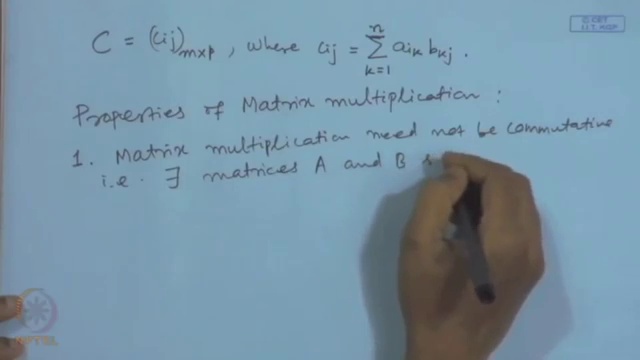 © CET
I.I.T. KGP
C = (cij)m×p, where cij = n∑k=1 aik bkj.
Properties of Matrix multiplication :
1. Matrix multiplication need not be commutative
i.e. ∃ matrices A and B s
NPTEL